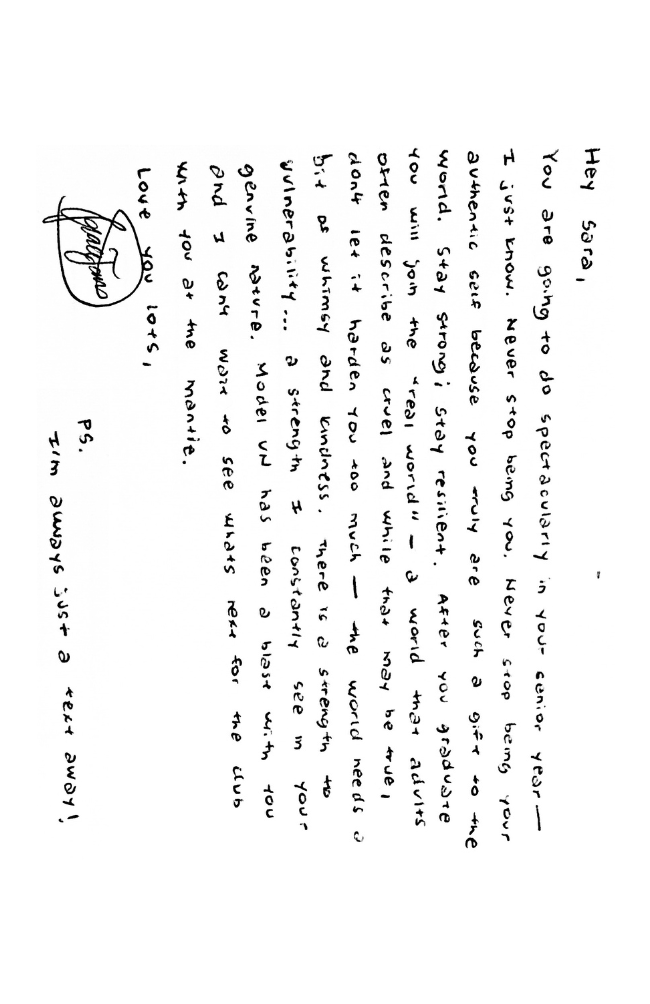 Hey Sara,
You are going to do spectacularly in your senior year —
I just know. Never stop being you. Never stop being your
authentic self because you truly are such a gift to the
world. Stay strong; stay resilient. After you graduate
you will join the "real world" — a world that adults
often describe as cruel and while that may be true,
don't let it harden you too much — the world needs a
bit of whimsy and kindness. There is a strength to
vulnerability... a strength I constantly see in your
genuine nature. Model UN has been a blast with you
and I can't wait to see whats next for the club
with you at the mantle.
Love you lots,
PS.
I'm always just a text away!